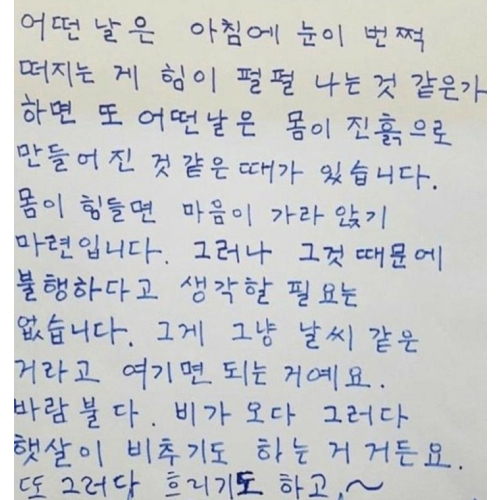 어떤 날은 아침에 눈이 번쩍
떠지는 게 힘이 펄펄 나는 것 같은가
하면 또 어떤날은 몸이 진흙으로
만들어 진 것 같은 때가 있습니다.
몸이 힘들면 마음이 가라 앉기
마련입니다. 그러나 그것 때문에
불행하다고 생각할 필요는
없습니다. 그게 그냥 날씨 같은
거라고 여기면 되는 거예요.
바람불다. 비가 오다 그러다
햇살이 비추기도 하는 거 거든요.
또 그러다 흐리기도 하고,~